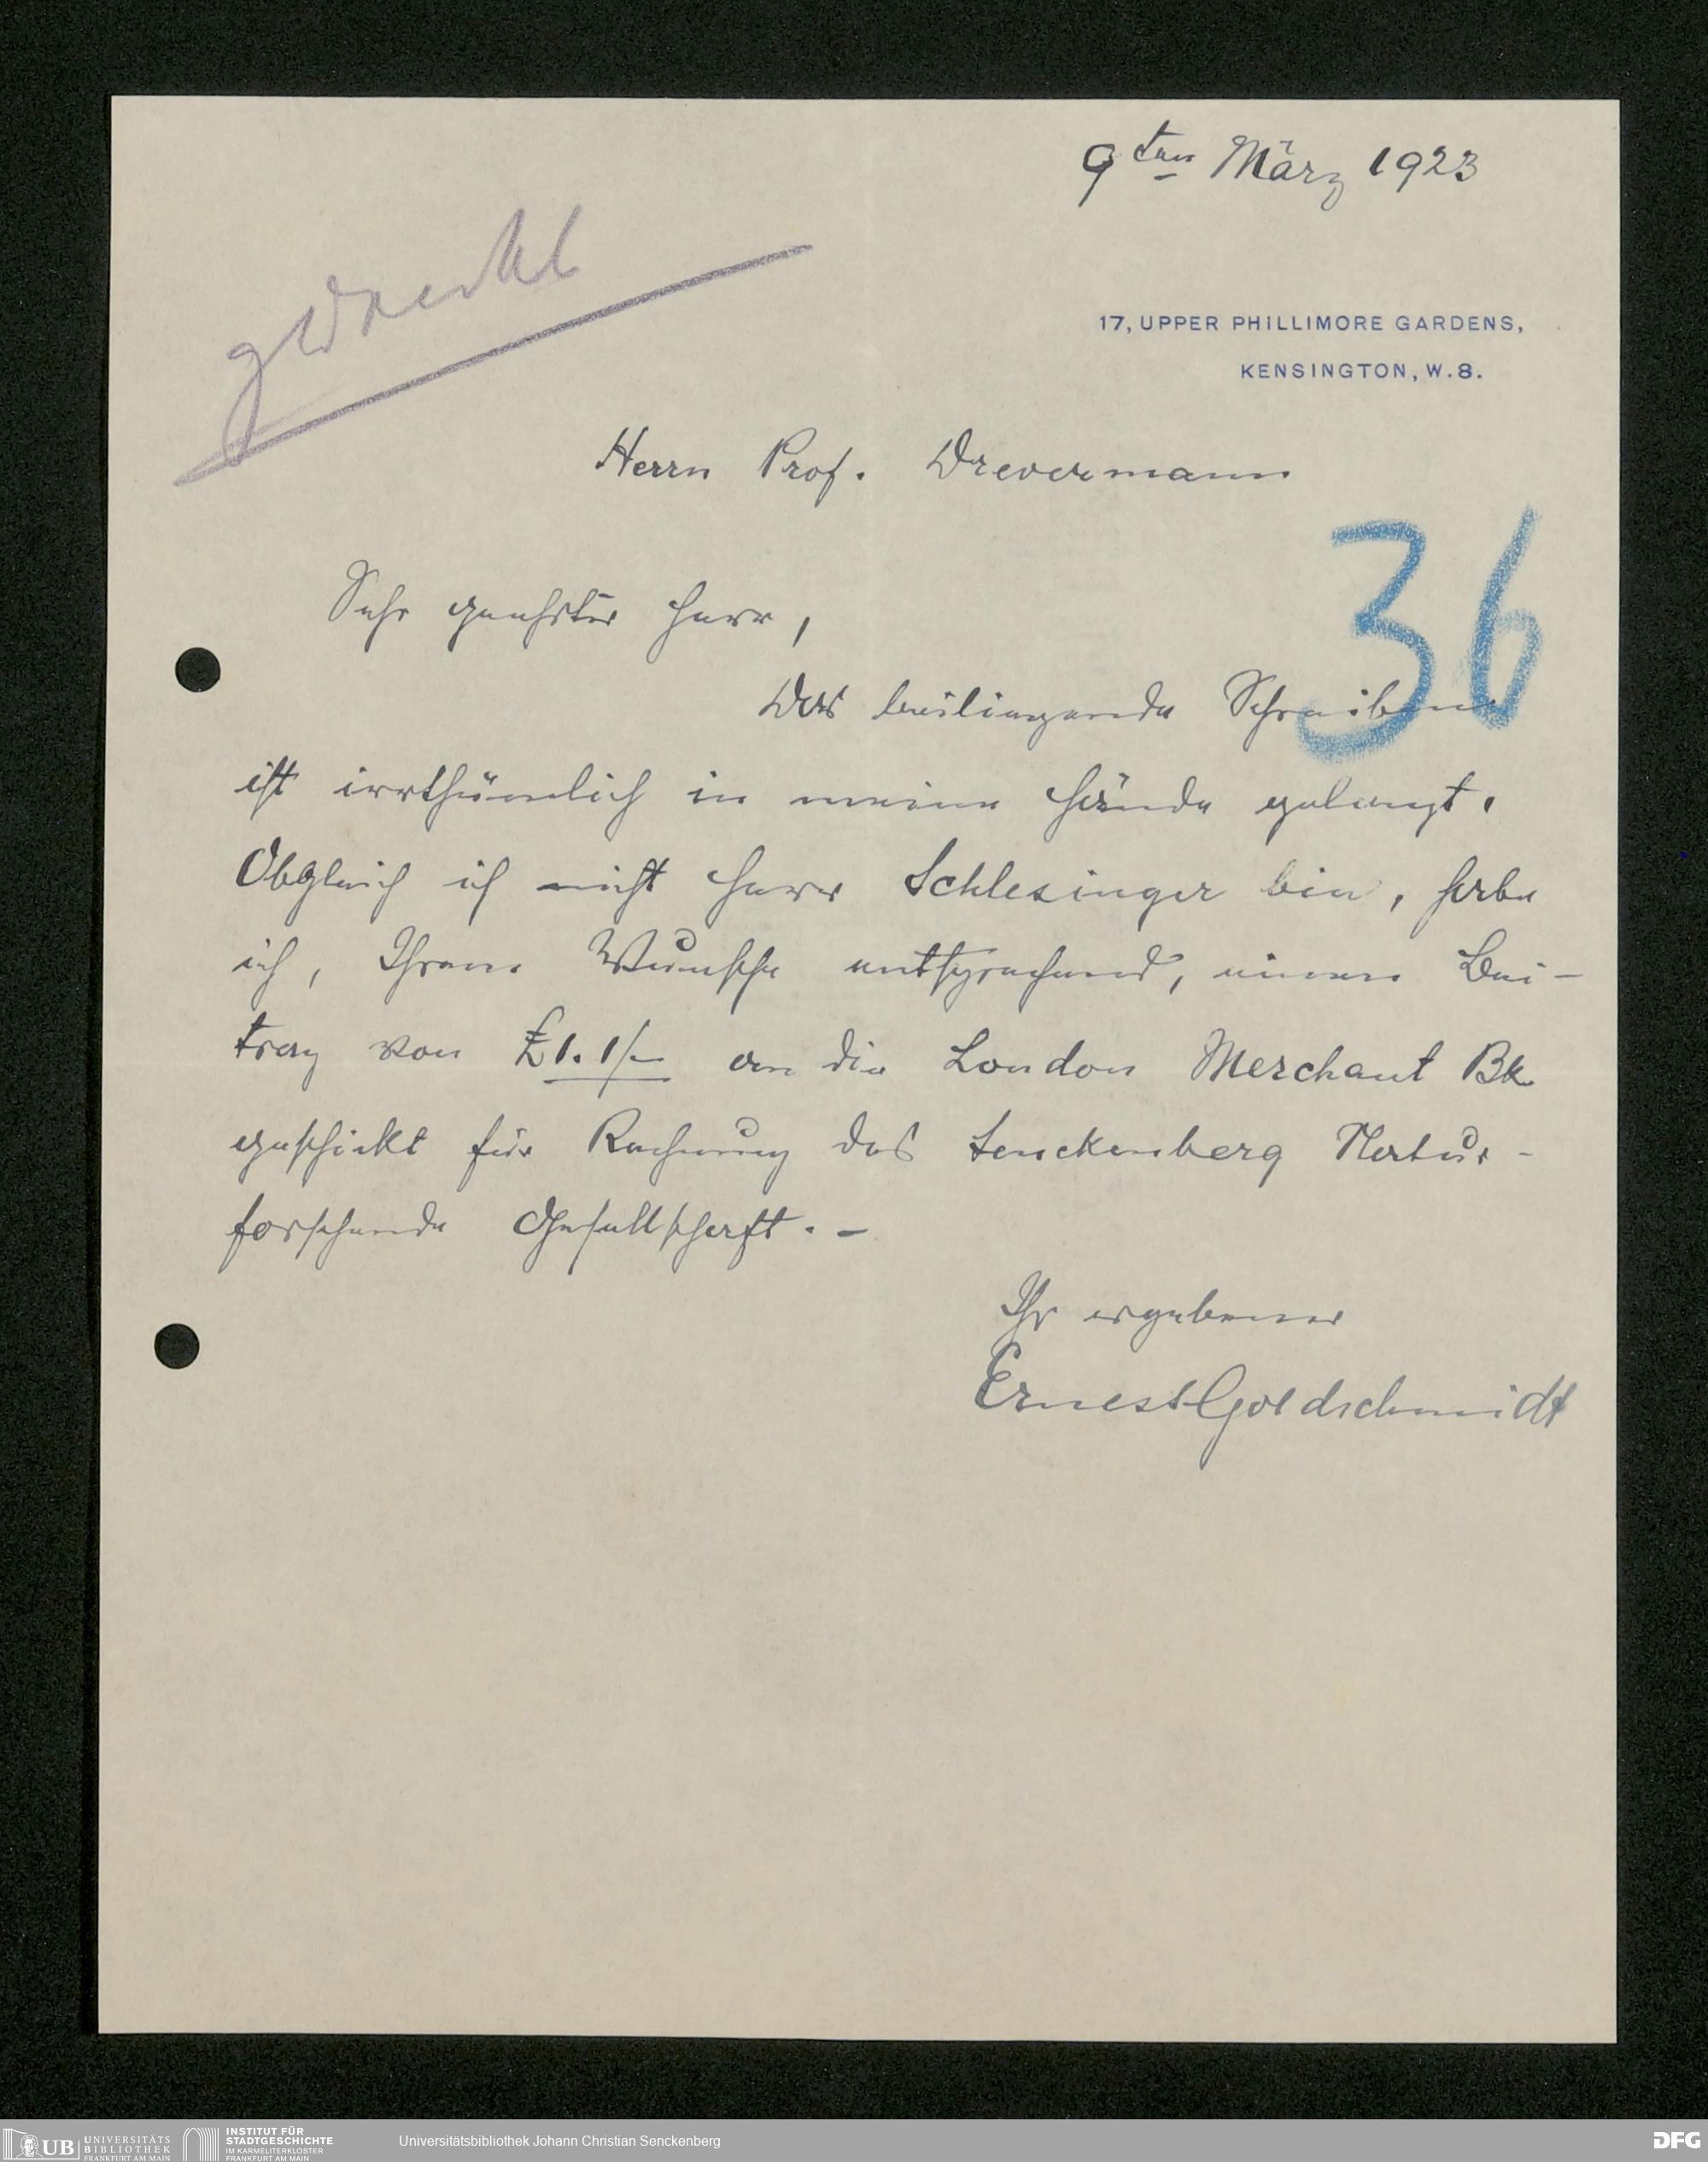 9ten März 1923
gedruckt
17, UPPER PHILLIMORE GARDENS,
KENSINGTON, W.8.
Herrn Prof. Drevermann
36
Sehr geehrter Herr,
Das beiliegende Schreiben
ist irrthümlich in meine Hände gelangt.
Obgleich ich nicht Herr Schlesinger bin, habe
ich, Ihrem Wunsche entsprechend, einen Bei-
trag von £1.1/- an die London Merchant Bk
geschickt für Rechnung des Senckenberg Natur-
forschende Gesellschaft. -
Ihr ergebener
Ernest Goldschmidt
UB UNIVERSITÄTS
BIBLIOTHEK
FRANKFURT AM MAIN
INSTITUT FÜR
STADTGESCHICHTE
IM KARMELITERKLOSTER
FRANKFURT AM MAIN
Universitätsbibliothek Johann Christian Senckenberg
DFG